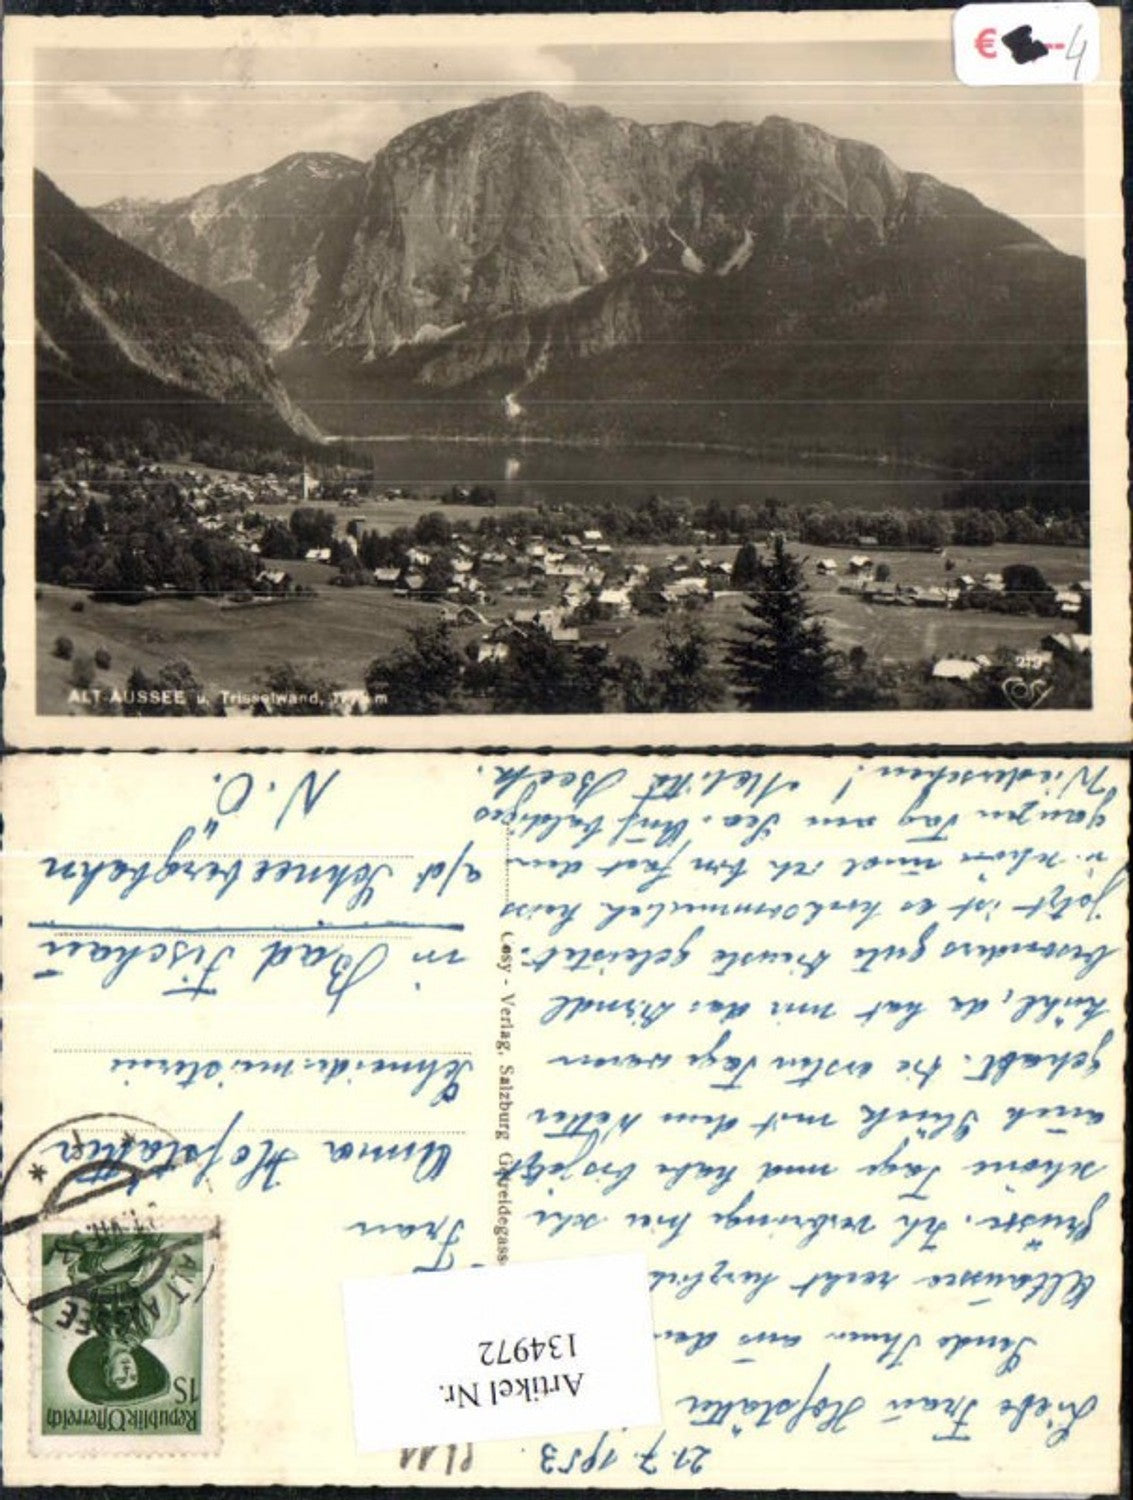 € --4
ALT-AUSSEE u. Trisselwand,
212
Cosy
21.7.1953
Liebe Frau Hofstätter
Sende Ihnen aus dem
Altaussee recht herzliche
Grüsse. Ich verbringe hier sehr
schöne Tage und habe bis jetzt
auch Glück mit dem Wetter
gehabt. Die ersten Tage waren
kühl, da hat mir das Dirndl
besonders gute Dienste geleistet.
jetzt ist es hochsommerlich heiss
u. schön und ich bin fast den
ganzen Tag am See. Auf baldiges
Wiedersehen! Melitta Beck.
Cosy - Verlag, Salzburg
Artikel Nr.
134972
Republik Österreich
1S
ALT AUSSEE
Frau
Anna Hofstätter
Schneidermeisterin
in Bad Fischau
a/d Schneebergbahn
N.Ö.